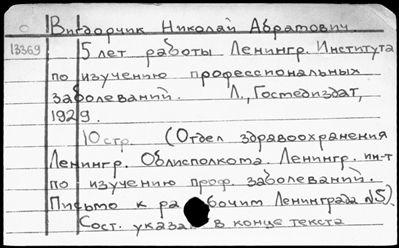 Вигдорчик Николай Абрамович.
13369 5 лет работы Ленингр. Института
по изучению профессиональных
заболеваний. Л., Гостедиздат,
1929.
10 стр. (Отдел здравоохранения
Ленингр. Облисполкома. Ленингр. ин-т
по изучению проф. заболеваний.
Письмо к рабочим Ленинграда №5).
Сост. указан в конце текста